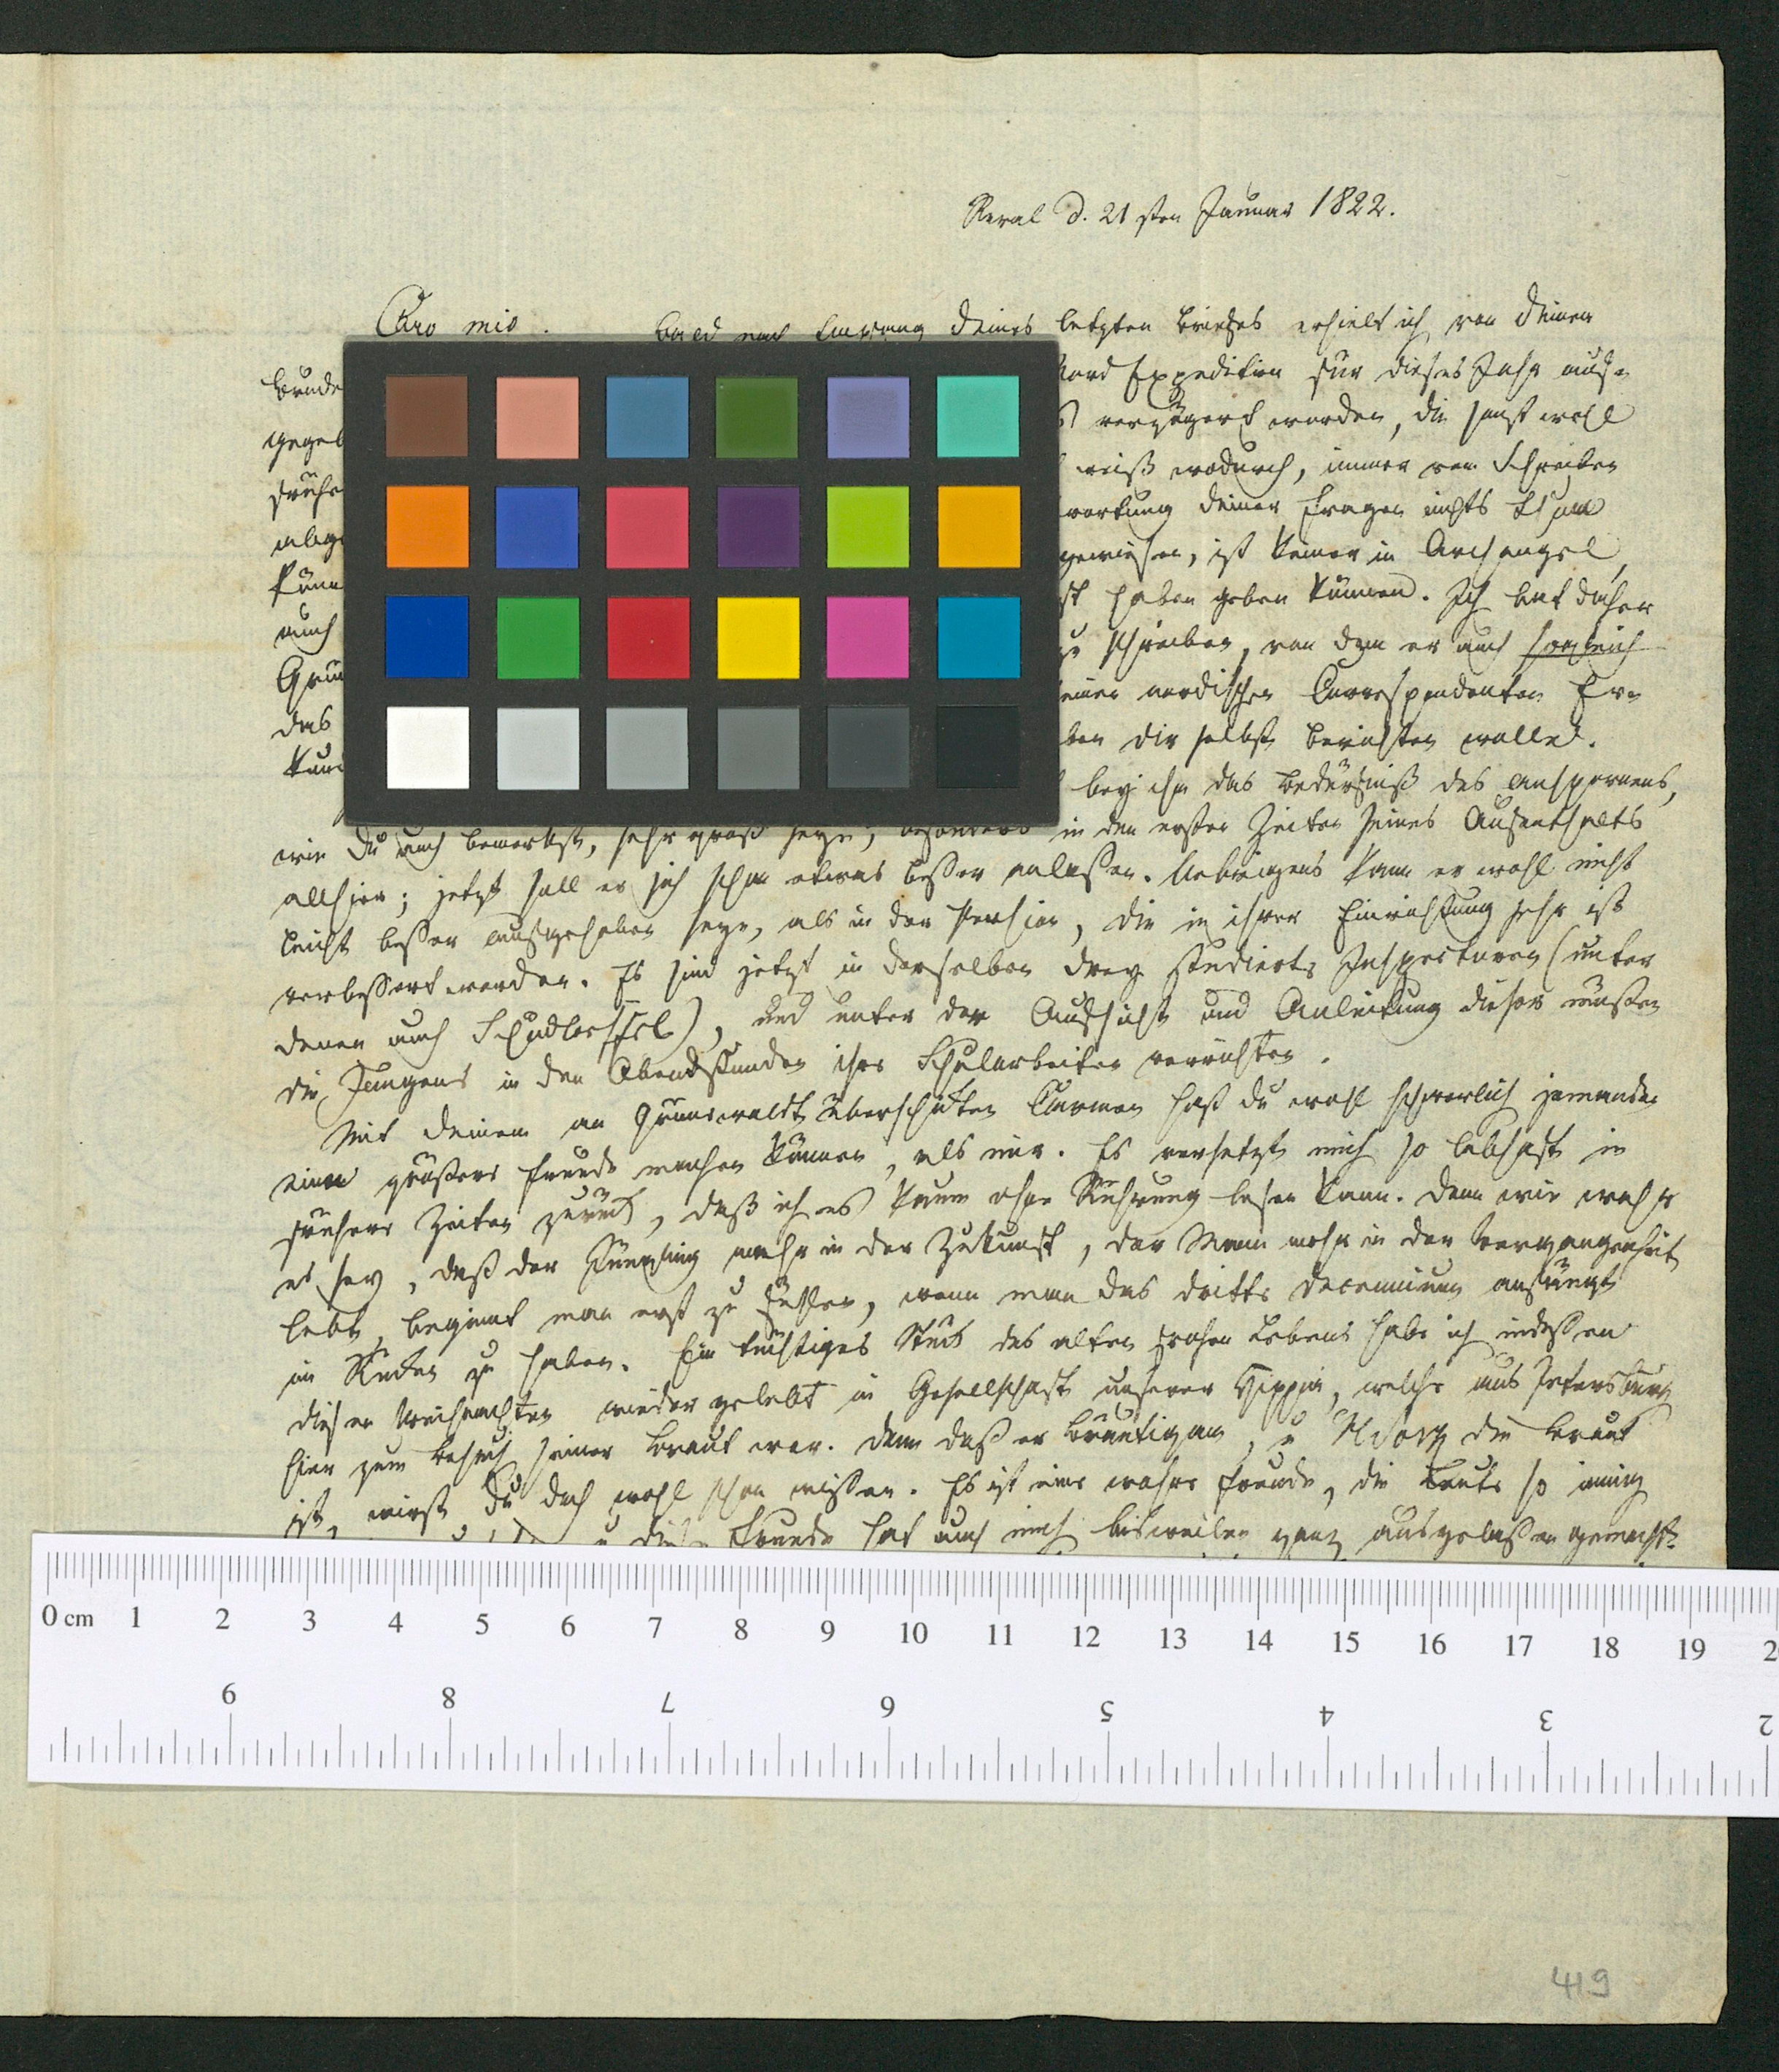 Reval d. 21sten Januar 1822.
Caro mio. Bald nach Empfang deines letzten Briefes erhielt ich von deinem
Brude Nord Expedition für dieses Jahr aus-
gegeb verzögert worden, die sonst wohl
frühe weiß wodurch, immer vom Schreiben
abge wortung deiner Fragen nichts thun
könn gewiesen, ist keiner in Archangel,
auch haben geben können. Ich bat daher
Grün zu schreiben, von dem er auch sogleich
das seinen nordischen Correspondenten Er-
kun ben dir selbst berichten wolle.
bey ihm das Bedürfniß des Anspornens,
wie du auch bemerkst, sehr groß seyn, besonders in den ersten Zeiten seines Aufenthalts
allhier; jetzt soll er sich schon etwas besser anlassen. Uebrigens kann er wohl nicht
leicht besser aufgehoben seyn, als in der Pension, die in ihrer Einrichtung sehr ist
verbessert worden. Es sind jetzt in derselben drey studierte Inspectoren (unter
denen auch Schüdloeffel), und unter der Aufsicht und Anleitung dieser müssen
die Jungens in den Abendstunden ihre Schularbeiten verrichten.
Mit deinem an Grünewaldt überschickten Carmen hast du wohl schwerlich jemanden
eine größere Freude machen können, als mir. Es versetzt mich so lebhaft in
frühere Zeiten zurück, daß ich es kaum ohne Rührung lesen kann. Denn wie wahr
es sey, daß der Jüngling mehr in der Zukunft, der Mann mehr in der Vergangenheit
lebt, beginnt man erst zu fühlen, wenn man das dritte Decennium anfängt
im Rücken zu haben. Ein tüchtiges Stück des alten frohen Lebens habe ich indessen
diese Weihnachten wieder gelebt in Gesellschaft unseres Hippius, welcher aus Petersburg
hier zum Besuch seiner Braut war. Denn daß er Bräutigam, u die Braut
ist, wirst du doch wohl schon wissen. Es ist eine wahre Freude, die Leute so innig
u diese Freude hat auch mich bisweilen ganz ausgelassen gemacht.
0 cm 1 2 3 4 5 6 7 8 9 10 11 12 13 14 15 16 17 18 19 2
9 8 7 6 5 4 3 2
419